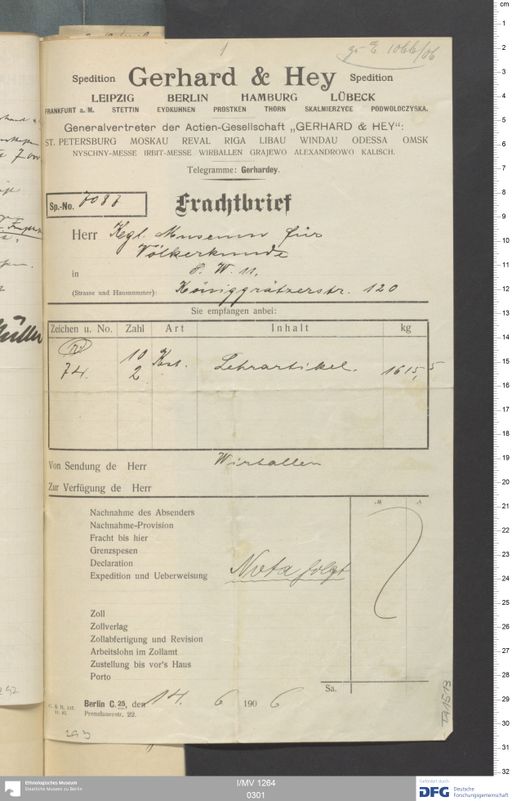 1
Spedition Gerhard & Hey Spedition
LEIPZIG BERLIN HAMBURG LÜBECK
FRANKFURT a. M. STETTIN EYDKUHNEN PROSTKEN THORN SKALMIERZYCE PODWOLOCZYSKA.
Generalvertreter der Actien-Gesellschaft „GERHARD & HEY“:
ST. PETERSBURG MOSKAU REVAL RIGA LIBAU WINDAU ODESSA OMSK
NYSCHNY-MESSE IRBIT-MESSE WIRBALLEN GRAJEWO ALEXANDROWO KALISCH.
Telegramme: Gerhardey.
Sp.-No. 7087
Frachtbrief
Herr Kgl. Museum für
Völkerkunde
in S. W. 11,
(Strasse und Hausnummer): Königgrätzerstr. 120
Sie empfangen anbei:
Zeichen u. No. Zahl Art Inhalt kg
10
74. 2 Kst. Lehrartikel. 1615,5
Von Sendung de Herr Wirballen
Zur Verfügung de Herr
M A
Nachnahme des Absenders
Nachnahme-Provision
Fracht bis hier
Grenzspesen
Declaration
Expedition und Ueberweisung Nota folgt
Zoll
Zollverlag
Zollabfertigung und Revision
Arbeitslohn im Zollamt
Zustellung bis vor's Haus
Porto
Sa.
Berlin C. 25, den 14. 6 1906
Prenzlauerstr. 22.
Ethnologisches Museum
Staatliche Museen zu Berlin
I/MV 1264
0301
Gefördert durch
DFG Deutsche
Forschungsgemeinschaft